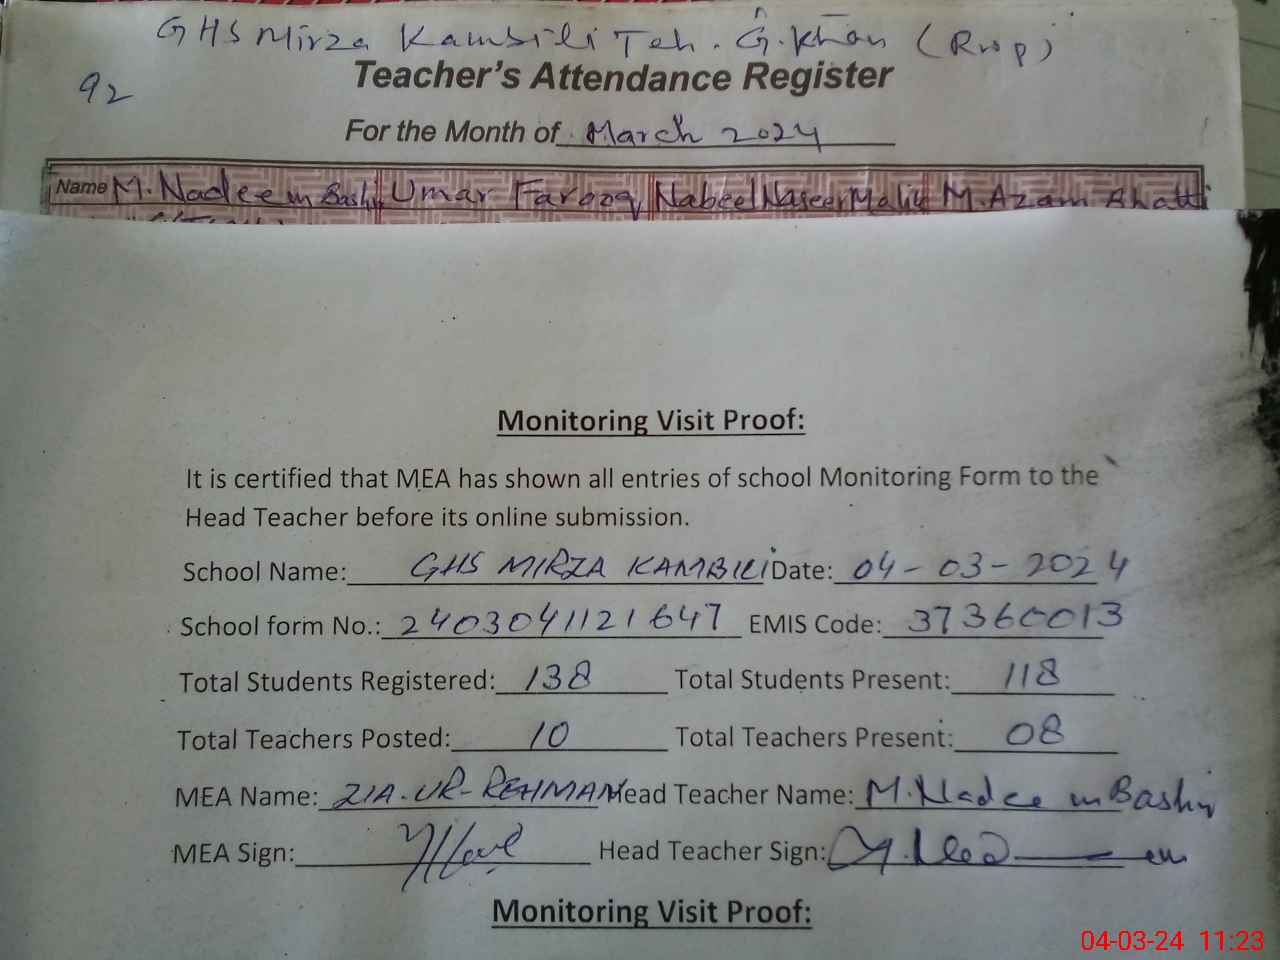 GHS Mirza Kambili Teh. G.Khan (Rwp)
92
Teacher's Attendance Register
For the Month of March 2024
Name M.Nadeem Bashir Umar Farooq Nabeel Naseer Malik M.Azam Bhatti
Monitoring Visit Proof:
It is certified that MEA has shown all entries of school Monitoring Form to the
Head Teacher before its online submission.
School Name: GHS MIRZA KAMBILI Date: 04-03-2024
School form No.: 2403041121647 EMIS Code: 37360013
Total Students Registered: 138 Total Students Present: 118
Total Teachers Posted: 10 Total Teachers Present: 08
MEA Name: ZIA-UR-REHMAN Head Teacher Name: M.Nadeem Bashir
MEA Sign: Head Teacher Sign:
Monitoring Visit Proof:
04-03-24 11:23